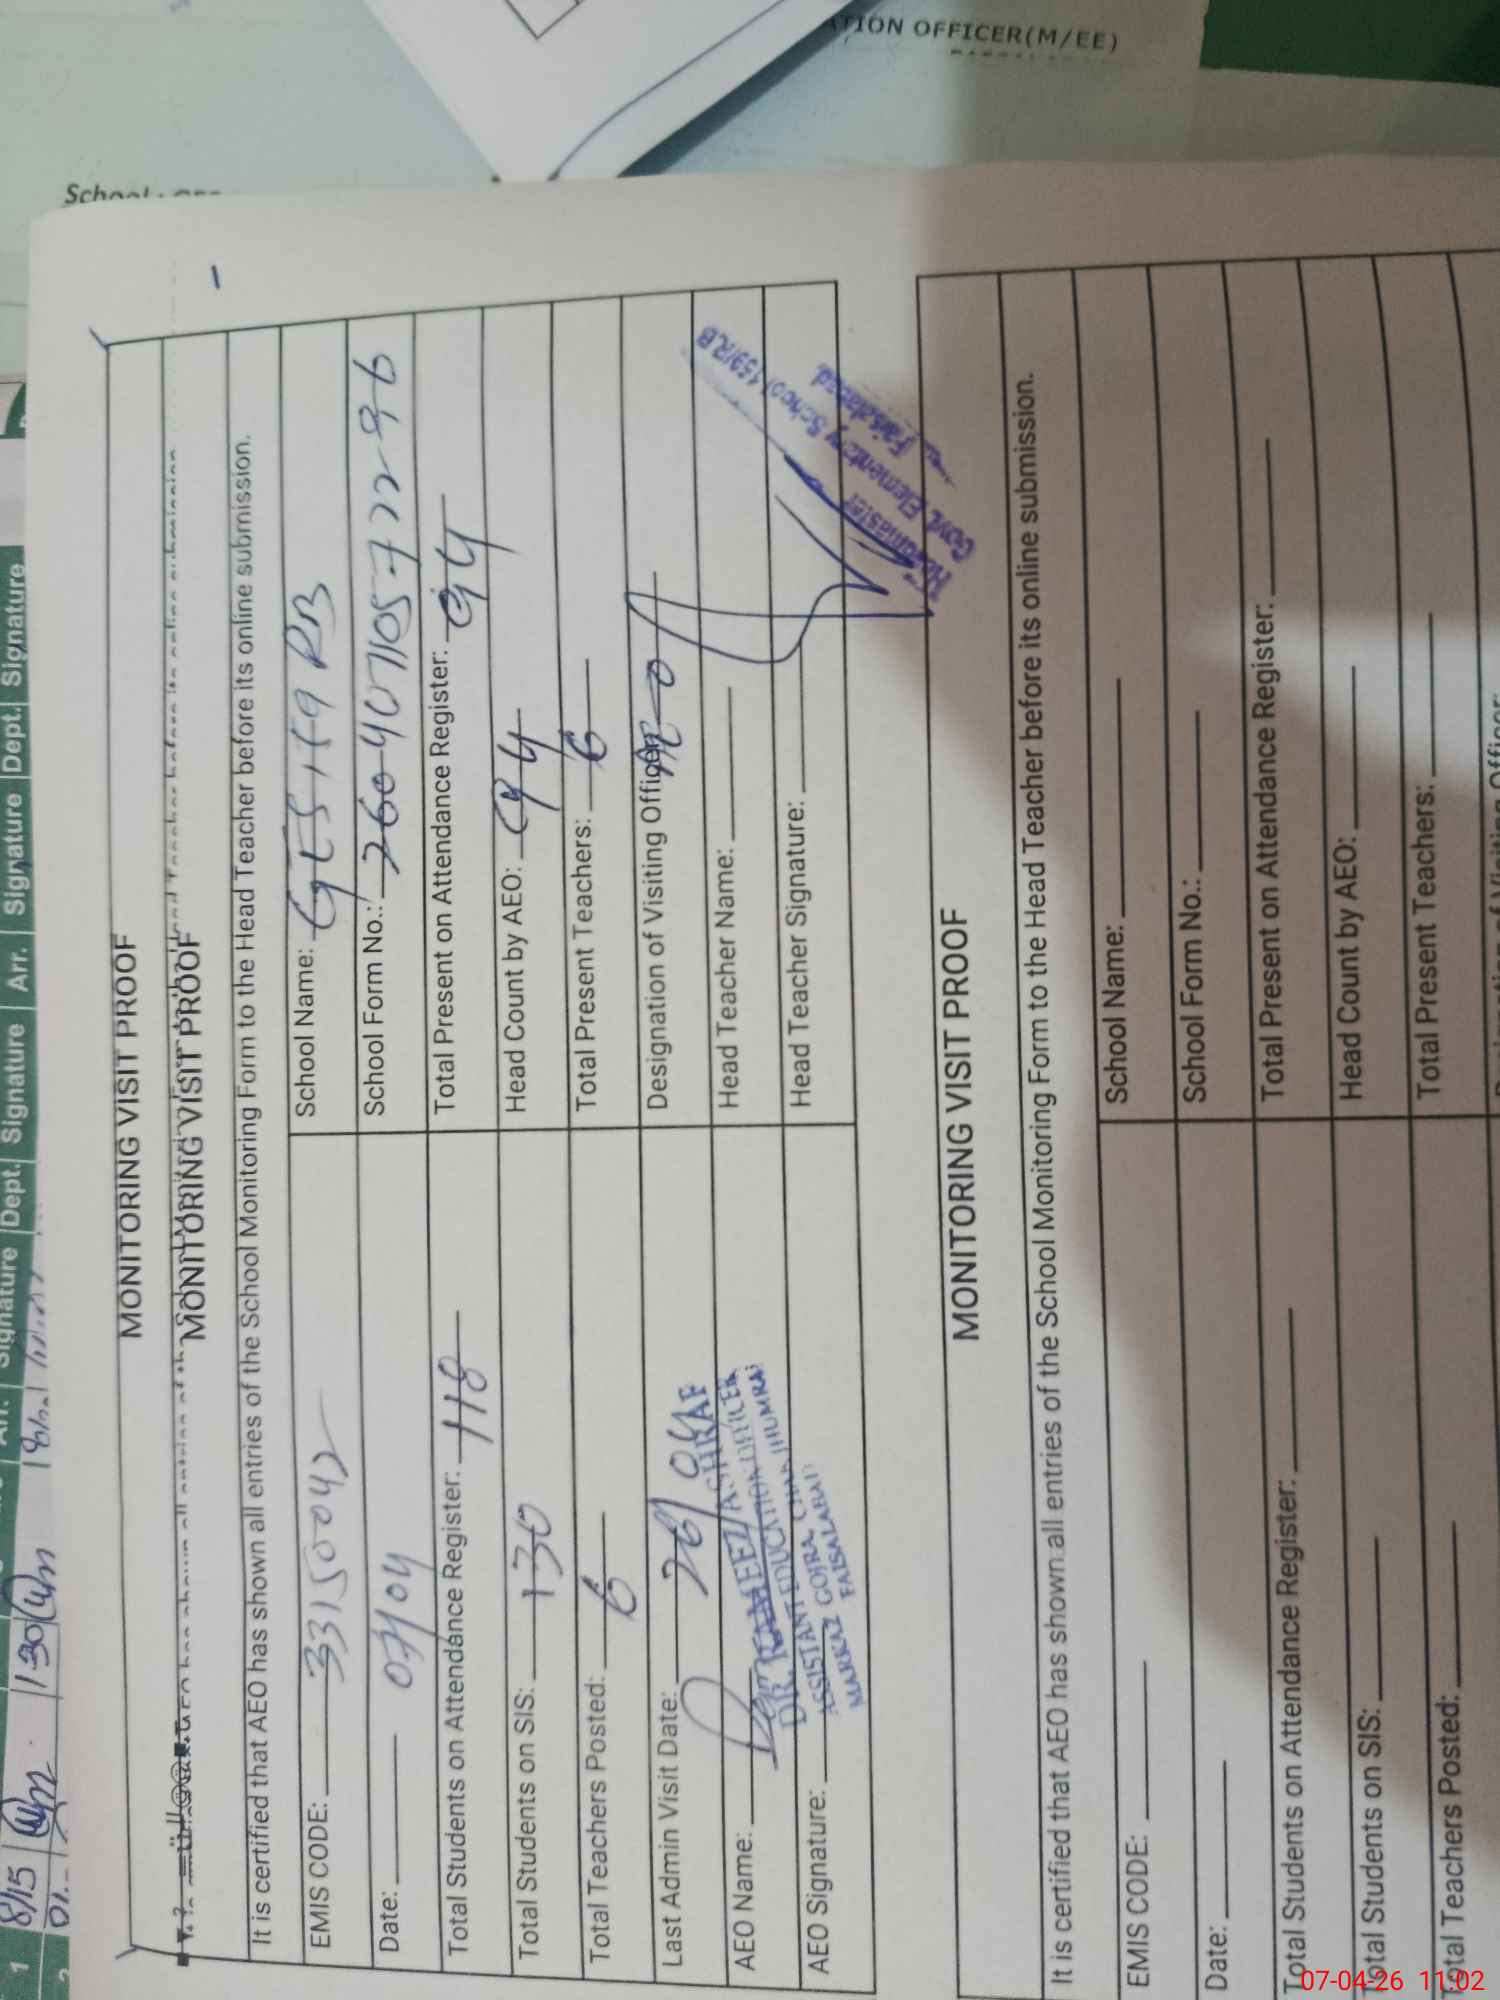 ATION OFFICER(M/EE)
School
Signature Dept. Signature Arr. Signature Dept. Signature
1 8/15 1 30
MONITORING VISIT PROOF
MONITORING VISIT PROOF
It is certified that AEO has shown all entries of the School Monitoring Form to the Head Teacher before its online submission.
EMIS CODE: 33150042 School Name: GES 159 RB
Date: 07/04 School Form No.:
Total Students on Attendance Register: 118 Total Present on Attendance Register: 94
Total Students on SIS: 130 Head Count by AEO: 94
Total Teachers Posted: 6 Total Present Teachers: 6
Last Admin Visit Date: 26/ Designation of Visiting Officer: AEO
AEO Name: Head Teacher Name:
AEO Signature: Head Teacher Signature:
DR. RAMEEZ ASHRAF
ASSISTANT EDUCATION OFFICER
MARKAZ GOJRA CHAK JHUMRA
FAISALABAD
Headmaster
Govt. Elementary School 159/R.B
Faisalabad.
MONITORING VISIT PROOF
It is certified that AEO has shown all entries of the School Monitoring Form to the Head Teacher before its online submission.
EMIS CODE: School Name:
Date: School Form No.:
Total Students on Attendance Register: Total Present on Attendance Register:
Total Students on SIS: Head Count by AEO:
Total Teachers Posted: Total Present Teachers:
07-04-26 11:02